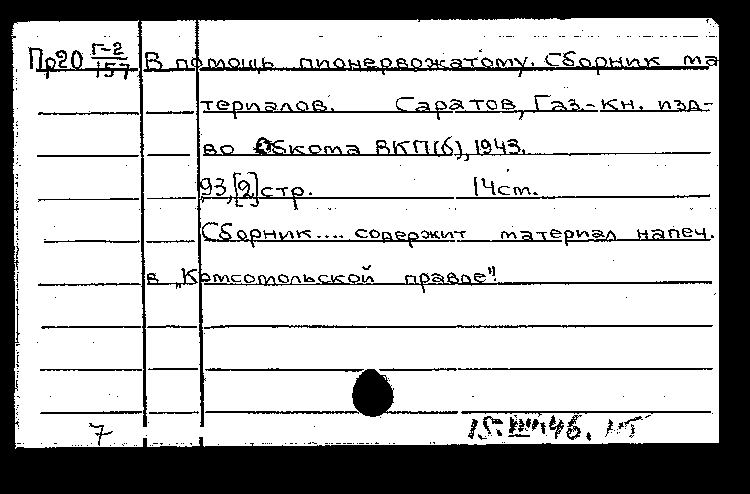 Пр20 Г-2/157 В помощь пионервожатому. Сборник ма
териалов. Саратов, Газ.-кн. изд-
во Обкома ВКП(б), 1943.
93,[2]стр. 14см.
Сборник.... содержит материал напеч.
в „Комсомольской правде".
7 15.VIII.46.